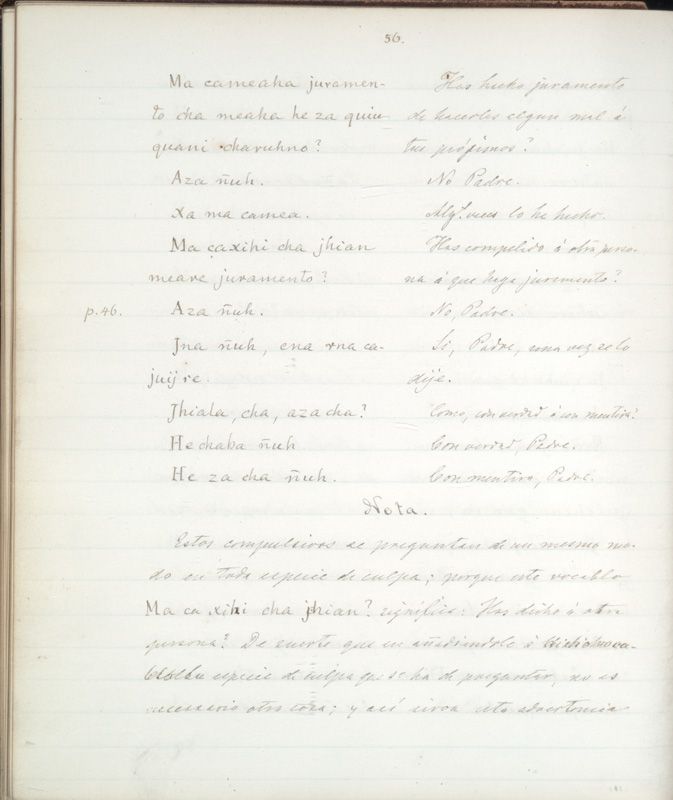 56.
Ma cameaha juramen- Has hecho juramento
to cha meaha he za quiu de hacerles algun mal á
quani charuhno? tus prójimos?
Aza ñuh. No Padre.
Xa ma camea. Algs. veces lo he hecho.
Ma caxihi cha jhian Has compelido á otra perso-
meare juramento? na á que haga juramento?
p. 46. Aza ñuh. No, Padre.
Jna ñuh, ena rna ca- Si, Padre, una vez se lo
juijre. dije.
Jhiala, cha, aza cha? Como, con verdad ó con mentira?
He chaba ñuh Con verdad, Padre.
He za cha ñuh. Con mentira, Padre.
Nota.
Estos compulsivos se preguntan de un mesmo mo-
do en toda especie de culpa; porque este vocablo
Ma ca xihi cha jhian? significa: Has dicho á otra
persona? De suerte que en añadiendole á
especie de culpa que se ha de preguntar, no es
necesario otra cosa; y así sirva esta advertencia